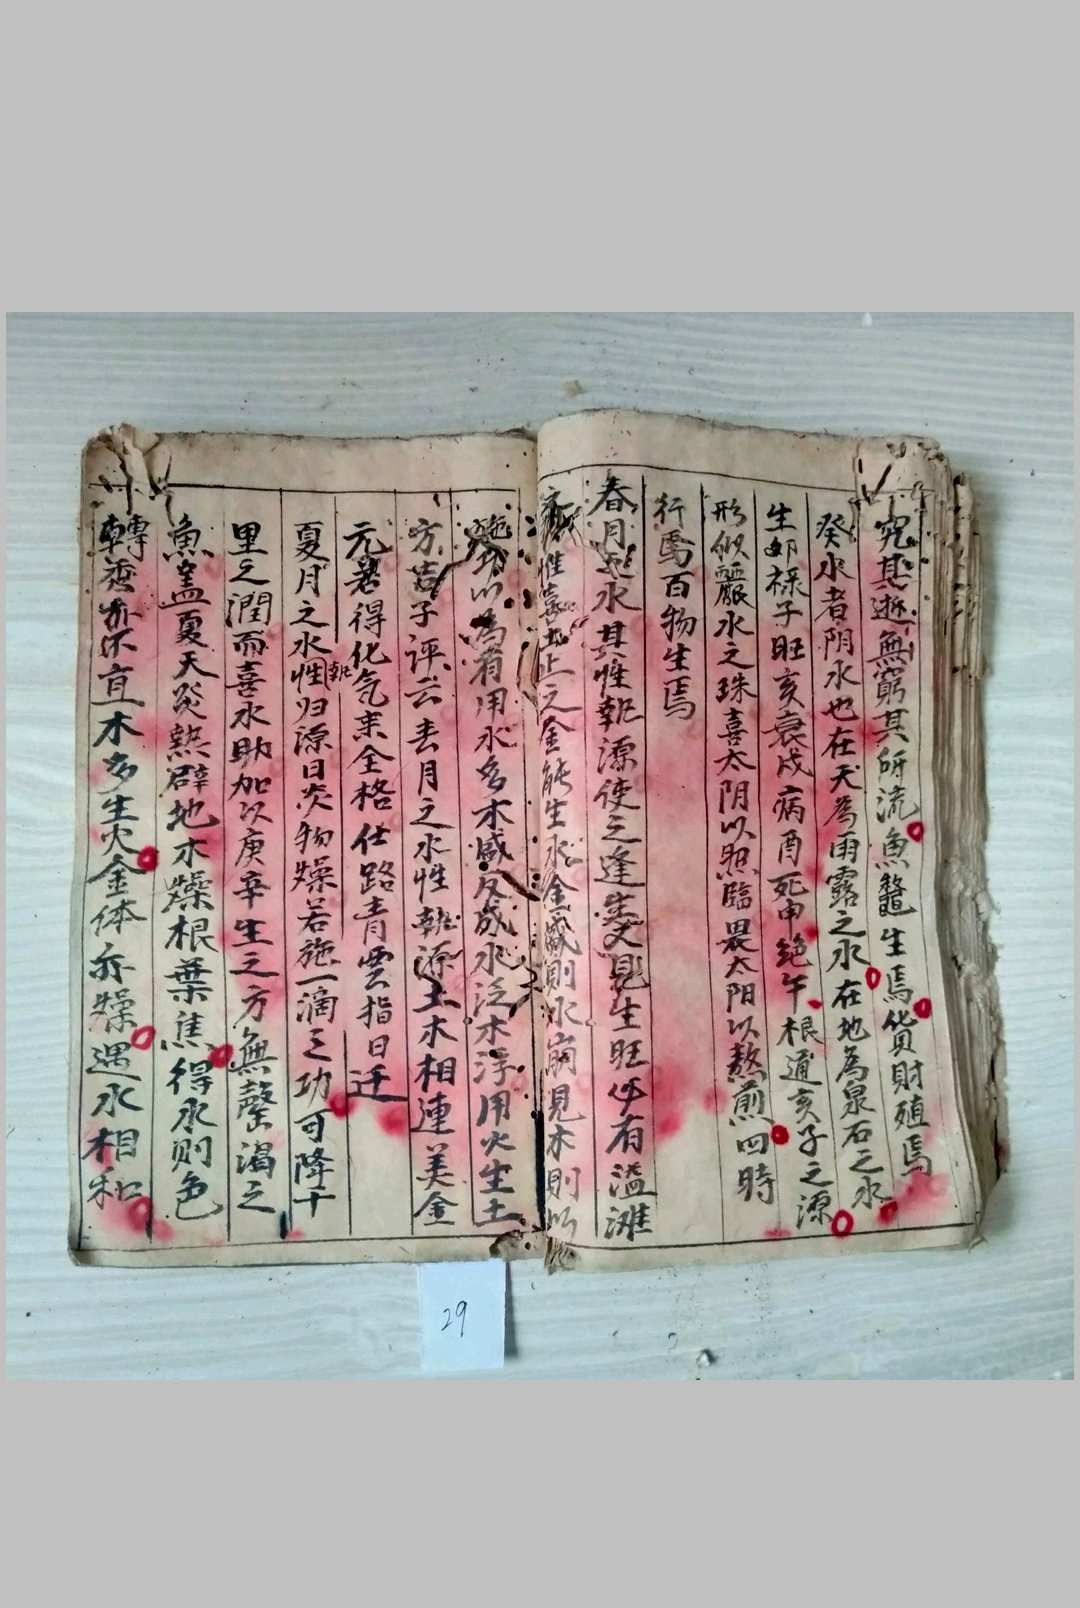 究其逝無窮其所流魚鼈生焉貨財殖焉
癸水者阴水也在天為雨露之水在地為泉石之水
生卯禄子旺亥衰戌病酉死申絶午根通亥子之源
形似麗水之珠喜太阴以照臨畏太阳以熬煎四時
行焉百物生焉
春月水其惟執源使之逢生更見生旺必有溢滩
惟喜土止之金能生水金咸則水崩見木則以
以為有用水多木咸反成水泛木浮用火生土
方吉子评云春月之水性執源土木相連美金
元暑得化气来全格仕路青雲指日迁
夏月之水性執归源日炎物燥若施一滴之功可降十
里之潤而喜水助加以庚辛生之方無罄渴之
魚盖夏天炎熱辟地木燥根葉焦得水则色
轉亦不宜木多生火金体亦燥遇水相和
29